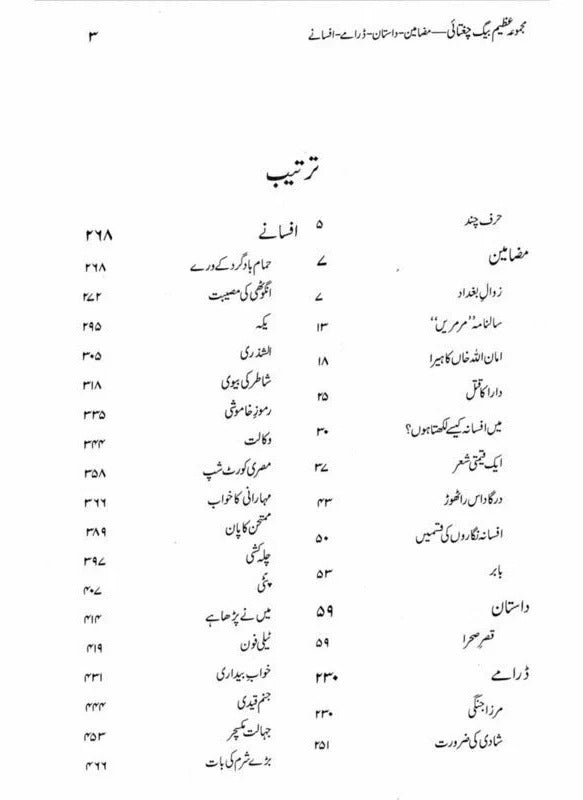 مجموعہ عظیم بیگ چغتائی — مضامین - داستان - ڈرامے - افسانے ۳
ترتیب
حرف چند ۵
مضامین ۷
زوالِ بغداد ۷
سالنامہ ”مرمریں“ ۱۳
امان اللہ خاں کا ہیرا ۱۸
دارا کا قتل ۲۵
میں افسانہ کیسے لکھتا ہوں؟ ۳۰
ایک قیمتی شعر ۳۷
درگا داس راٹھوڑ ۴۳
افسانہ نگاروں کی قسمیں ۵۰
بابر ۵۳
داستان ۵۹
قصرِ صحرا ۵۹
ڈرامے ۲۳۰
مرزا جنگی ۲۳۰
شادی کی ضرورت ۲۵۱
افسانے ۲۶۸
حمام بادگرد کے ورے ۲۶۸
انگوٹھی کی مصیبت ۲۷۲
یکہ ۲۹۵
الشذری ۳۰۵
شاطر کی بیوی ۳۱۸
رموزِ خاموشی ۳۳۵
وکالت ۳۴۴
مصری کورٹ شپ ۳۵۸
مہارانی کا خواب ۳۶۶
ممتحن کا پان ۳۸۹
چلہ کشی ۳۹۷
پٹی ۴۰۷
میں نے پڑھا ہے ۴۱۴
ٹیلی فون ۴۱۹
خوابِ بیداری ۴۳۱
جنم قیدی ۴۴۴
جہالت مکسچر ۴۵۳
بڑے شرم کی بات ۴۶۶